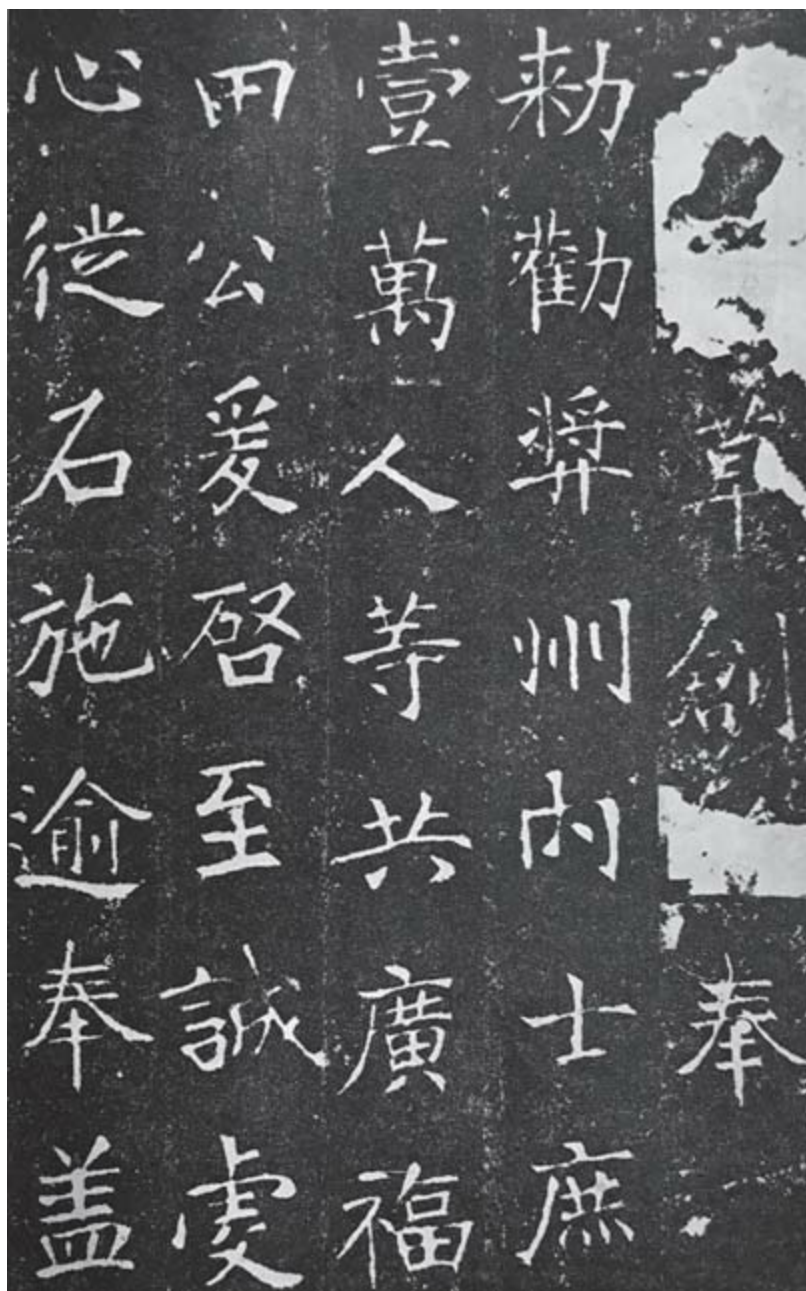 草創奉
勑勸奨州内士庶
壹萬人等共廣福
田公爰啓至誠虔
心従石施逾奉盖